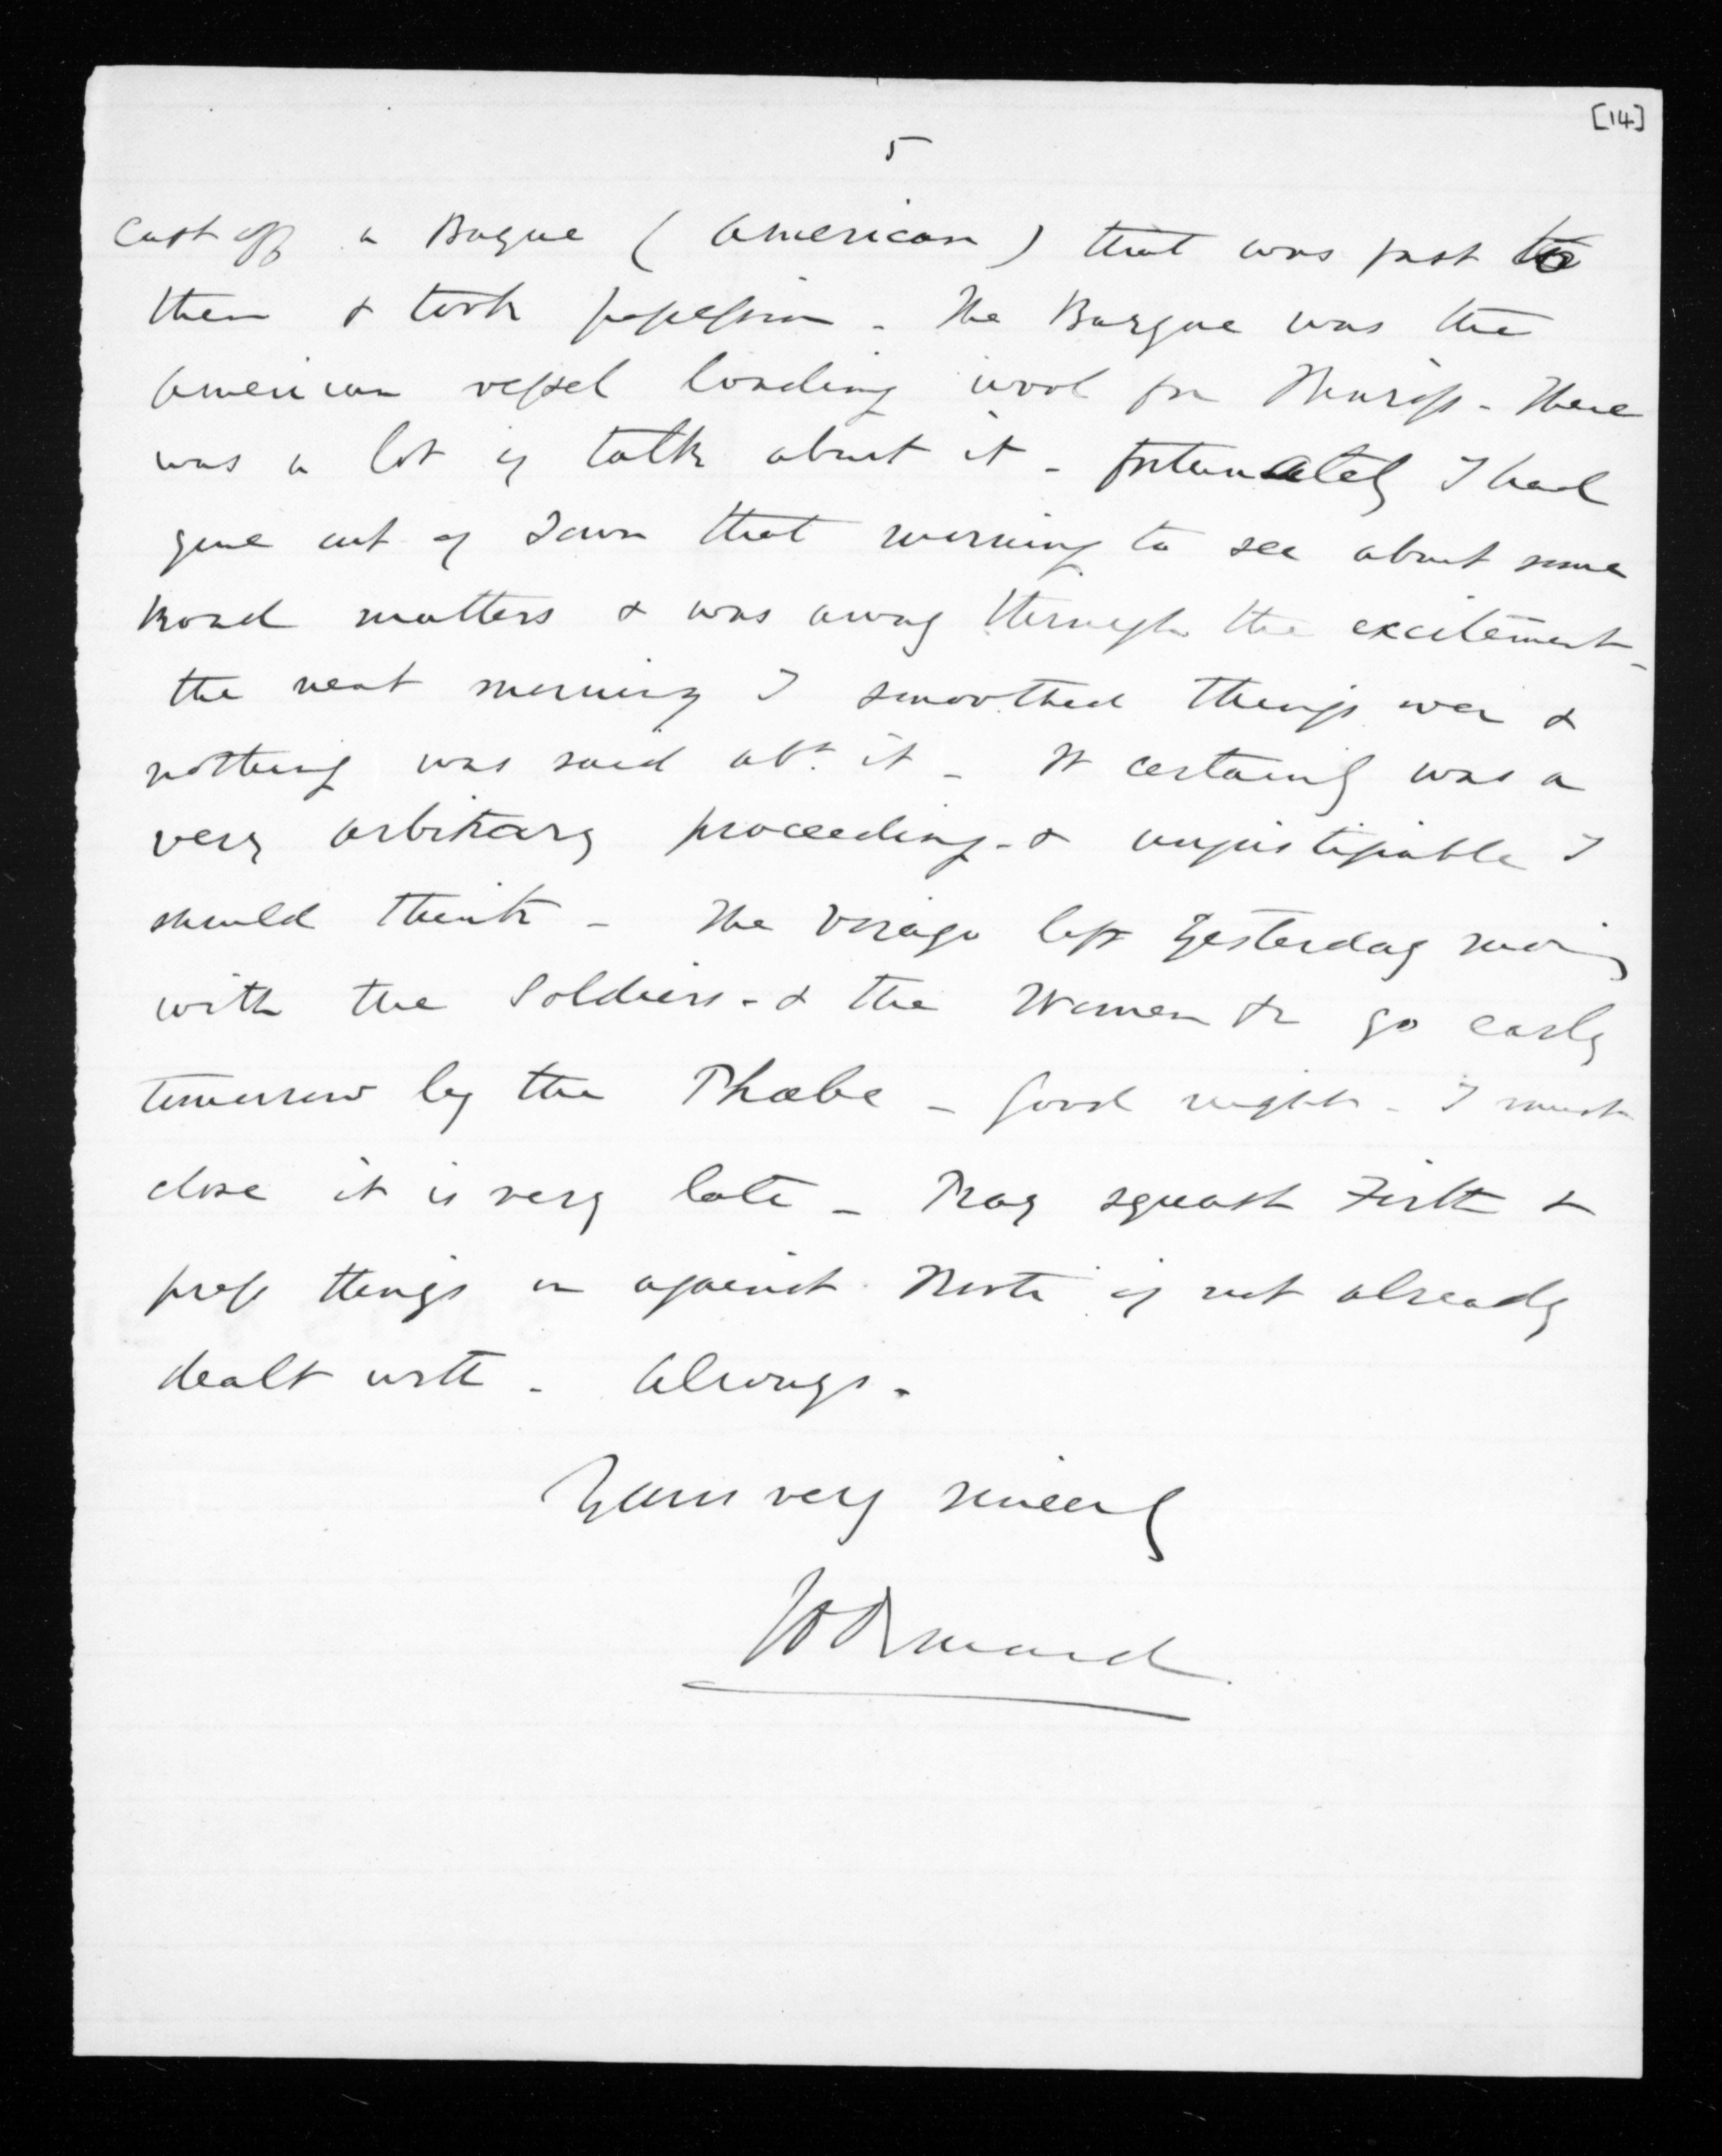 [14]
5
Cast off a Barque (American) that was fast to
them & took possession - The Barque was the
American vessel loading wool for - There
was a lot of talk about it - fortunately I had
gone out of Town that morning to see about some
Road matters & was away through the excitement -
the next morning I smoothed things over &
nothing was said abt. it - It certainly was a
very arbitrary proceeding - & unjustifiable I
should think - The Virago left yesterday morning
with the Soldiers - & the Women &c go early
tomorrow by the Phoebe - Good night - I must
close it is very late - Pray squash Firth &
press things on against if not already
dealt with - Always -
Yours very sincerely
JDOrmond